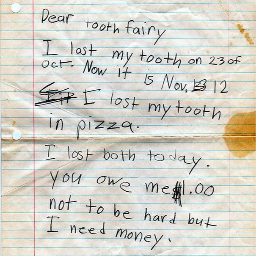 Dear tooth fairy
I last my tooth on 23 of
oct. Now it is Nov, 12
I lost my tooth
in pizza.
I lost both today.
you owe me $1.00
not to be hard but
I need money.